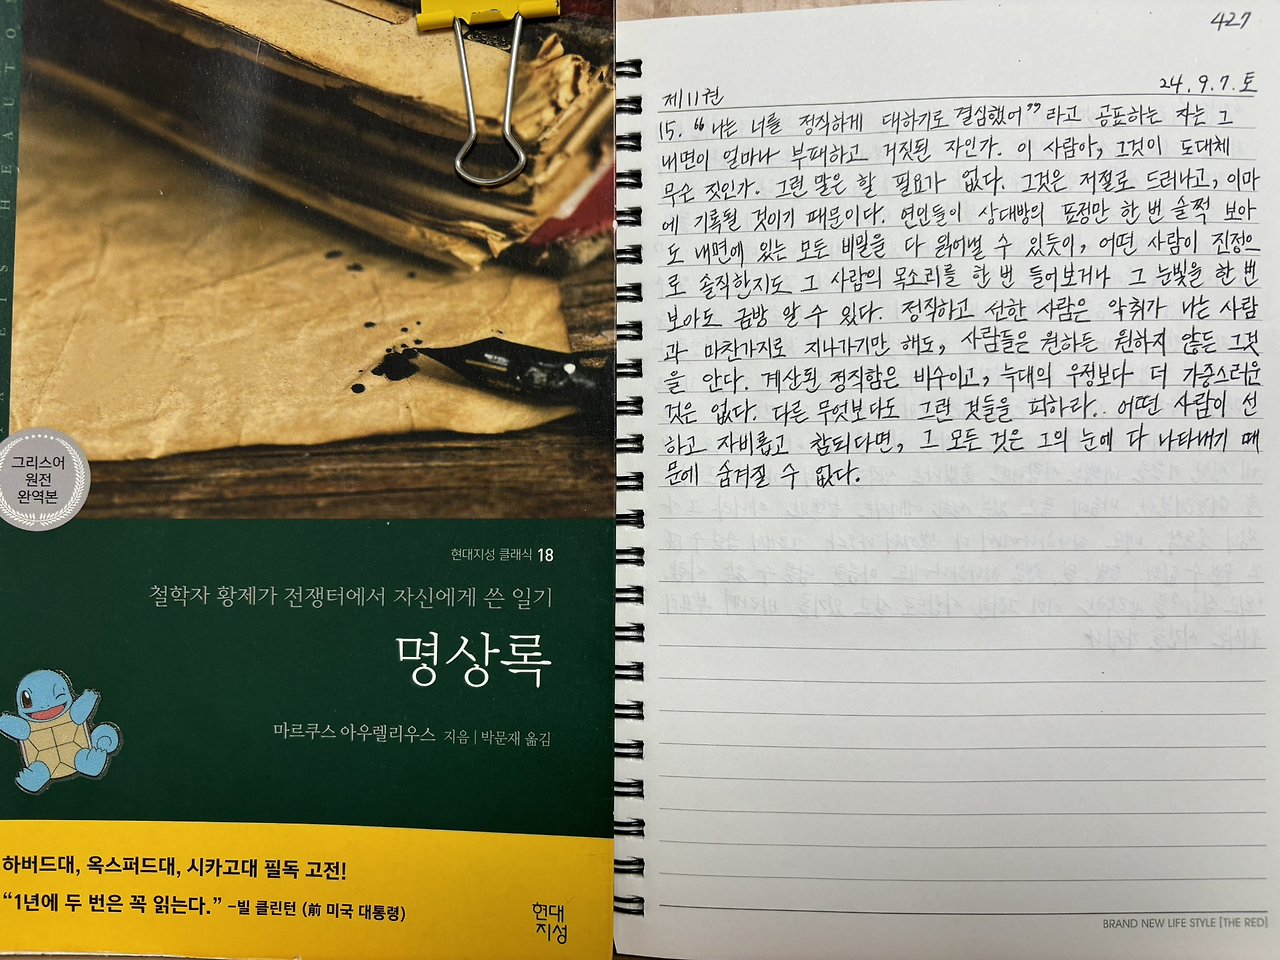 그리스어
원전
완역본
현대지성 클래식 18
철학자 황제가 전쟁터에서 자신에게 쓴 일기
명상록
마르쿠스 아우렐리우스 지음 | 박문재 옮김
하버드대, 옥스퍼드대, 시카고대 필독 고전!
“1년에 두 번은 꼭 읽는다.” –빌 클린턴 (前 미국 대통령)
현대
지성
427
제11권
24.9.7.토
15. “나는 너를 정직하게 대하기로 결심했어”라고 공표하는 자는 그
내면이 얼마나 부패하고 거짓된 자인가. 이 사람아, 그것이 도대체
무슨 짓인가. 그런 말은 할 필요가 없다. 그것은 저절로 드러나고, 이마
에 기록될 것이기 때문이다. 연인들이 상대방의 표정만 한 번 슬쩍 보아
도 내면에 있는 모든 비밀을 다 읽어낼 수 있듯이, 어떤 사람이 진정으
로 솔직한지도 그 사람의 목소리를 한 번 들어보거나 그 눈빛을 한 번
보아도 금방 알 수 있다. 정직하고 선한 사람은 악취가 나는 사람
과 마찬가지로 지나가기만 해도, 사람들은 원하든 원하지 않든 그것
을 안다. 계산된 정직함은 비수이고, 늑대의 우정보다 더 가증스러운
것은 없다. 다른 무엇보다도 그런 것들을 피하라. 어떤 사람이 선
하고 자비롭고 참되다면, 그 모든 것은 그의 눈에 다 나타내기 때
문에 숨겨질 수 없다.
BRAND NEW LIFE STYLE [THE RED]